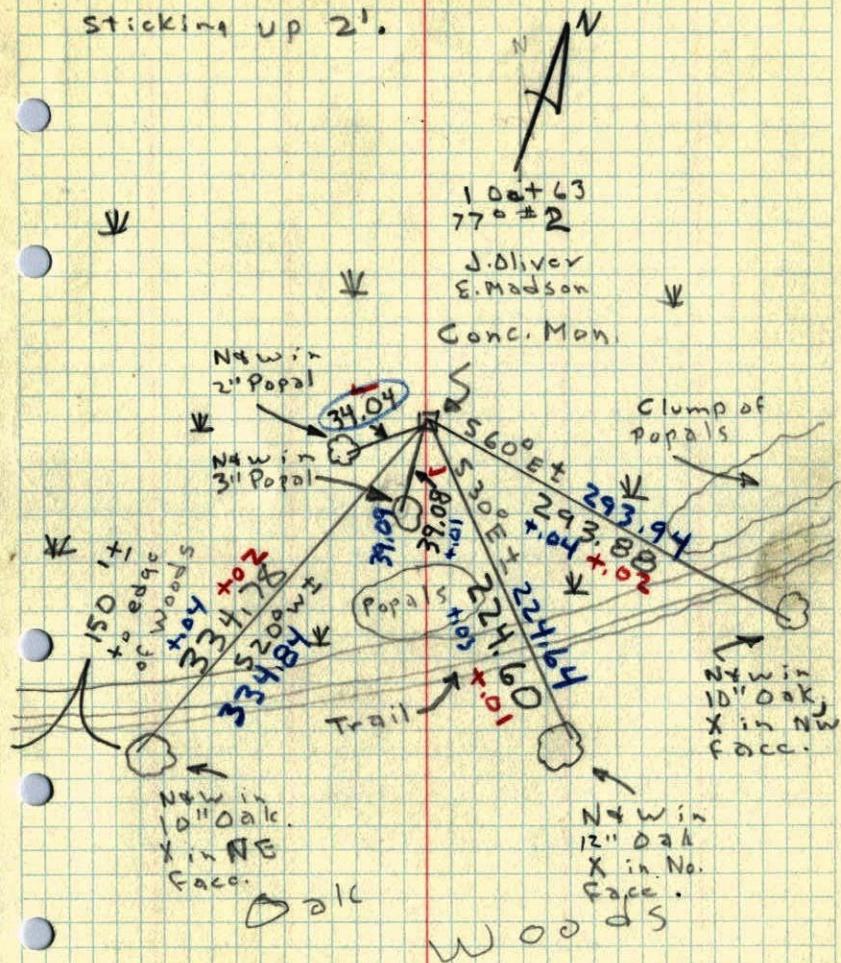 Sticking up 2'.
N
N
1 Oct 63
77° #2
J. Oliver
E. Madson
Conc. Mon.
N&W in
2" Popal
34.04
N&W in
3" Popal
39.09
39.08
+.01
Clump of
Popals
S60°E±
293.94
293.88
+.04
+.02
S30°E±
224.64
224.60
+.03
+.01
Popals
150'±
to edge
of Woods
+.04
+.02
334.78
S20°W±
334.84
Trail
N&W in
10" Oak,
X in NW
Face.
N&W in
10" Oak.
X in NE
Face.
N&W in
12" Oak
X in No.
Face.
Oak
Woods